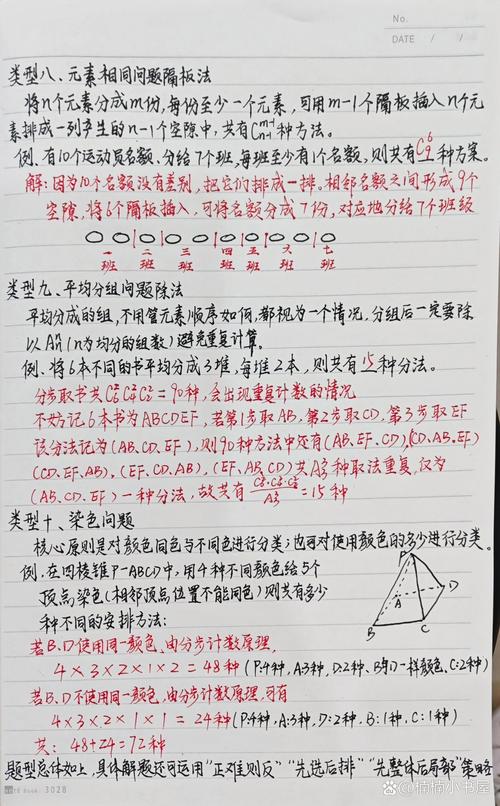 No.
DATE / /
类型八、元素相同问题隔板法
将n个元素分成m份,每份至少一个元素,可用m-1个隔板插入n个元
素排成一列产生的n-1个空隙中,共有C_{n-1}^{m-1}种方法。
例、有10个运动员名额、分给7个班,每班至少有1个名额,则共有C_9^6种方案。
解:因为10个名额没有差别,把它们排成一排。相邻名额之间形成9个
空隙,将6个隔板插入,可将名额分成7份,对应地分给7个班级
一 二 三 四 五 六 七
班 班 班 班 班 班 班
类型九、平均分组问题除法
平均分成的组,不用管元素顺序如何,都视为一个情况,分组后一定要除
以A_n^n(n为均分的组数)避免重复计算。
例、将6本不同的书平均分成3堆,每堆2本,则共有15种分法。
分步取书共C_6^2C_4^2C_2^2=90种,会出现重复计数的情况
不妨记6本书为ABCDEF,若第1步取AB,第2步取CD,第3步取EF
该分法记为(AB,CD,EF),则90种方法中还有(AB,EF,CD),(CD,AB,EF)
(CD,EF,AB),(EF,CD,AB),(EF,AB,CD)共A_3^3种取法重复,仅为
(AB,CD,EF)一种分法,故共有\frac{C_6^2·C_4^2·C_2^2}{A_3^3}=15种
类型十、染色问题
核心原则是对颜色同色与不同色进行分类;也可对使用颜色的多少进行分类。
例、在四棱锥P-ABCD中,用4种不同颜色给5个
顶点染色(相邻顶点位置不能同色)则共有多少
种不同的安排方法:
P
A
D
B
C
若B、D使用同一颜色、由分步计数原理,
4×3×2×1×2=48种(P:4种,A:3种,D:2种、B与D一样颜色、C:2种)
若B、D不使用同一颜色,由分步计数原理,可有
4×3×2×1×1=24种(P:4种,A:3种,D:2种,B:1种,C:1种)
共:48+24=72种
题型总体如上,具体解题还可运用“正难则反”“先选后排”“先整体后局部”策略
3028
@楠楠小书屋